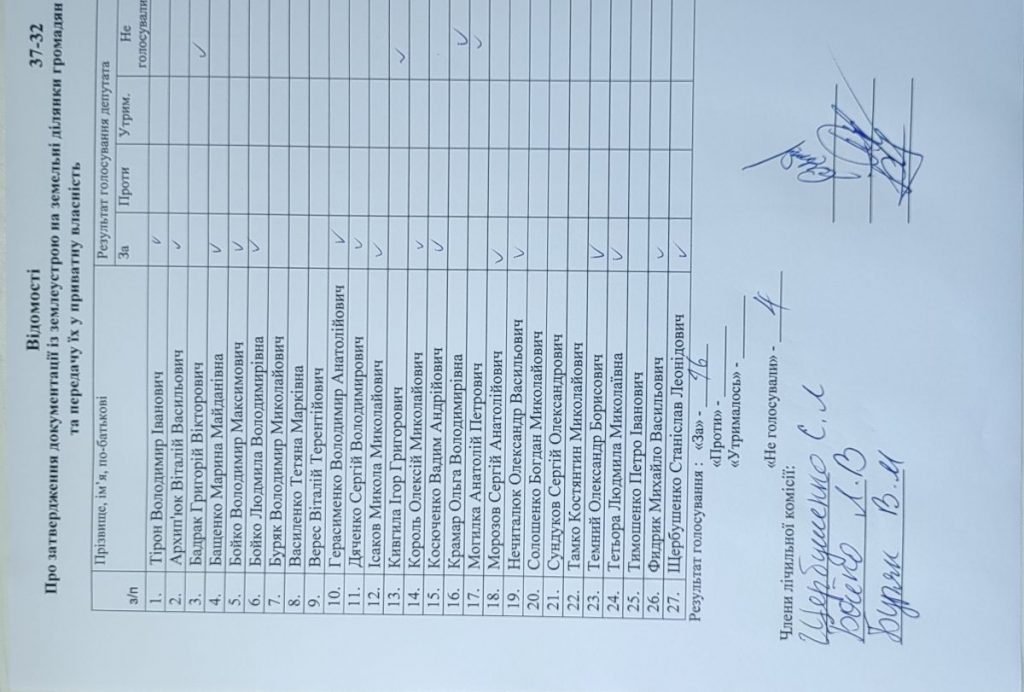 Відомості
37-32
Про затвердження документації із землеустрою на земельні ділянки громадян
та передачу їх у приватну власність
з/п Прізвище, ім'я, по-батькові Результат голосування депутата
За Проти Утрим. Не голосували
1. Тірон Володимир Іванович ✓
2. Архип'юк Віталій Васильович ✓
3. Бадрак Григорій Вікторович ✓
4. Баценко Марина Майданівна ✓
5. Бойко Володимир Максимович ✓
6. Бойко Людмила Володимирівна ✓
7. Буряк Володимир Миколайович
8. Василенко Тетяна Марківна
9. Верес Віталій Терентійович
10. Герасименко Володимир Анатолійович ✓
11. Дяченко Сергій Володимирович ✓
12. Ісаков Микола Миколайович ✓
13. Кивгила Ігор Григорович ✓
14. Король Олексій Миколайович ✓
15. Косюченко Вадим Андрійович ✓
16. Крамар Ольга Володимирівна ✓
17. Могилка Анатолій Петрович ✓
18. Морозов Сергій Анатолійович ✓
19. Нечиталюк Олександр Васильович ✓
20. Солошенко Богдан Миколайович
21. Сундуков Сергій Олександрович
22. Тамко Костянтин Миколайович
23. Темний Олександр Борисович ✓
24. Тетьора Людмила Миколаївна ✓
25. Тимошенко Петро Іванович
26. Фидрик Михайло Васильович ✓
27. Щербушенко Станіслав Леонідович ✓
Результат голосування : «За» - 16
«Проти» -
«Утрималось» -
«Не голосували» - 4
Члени лічильної комісії:
Щербушенко С. Л
Бойко Л. В
Буряк В. М